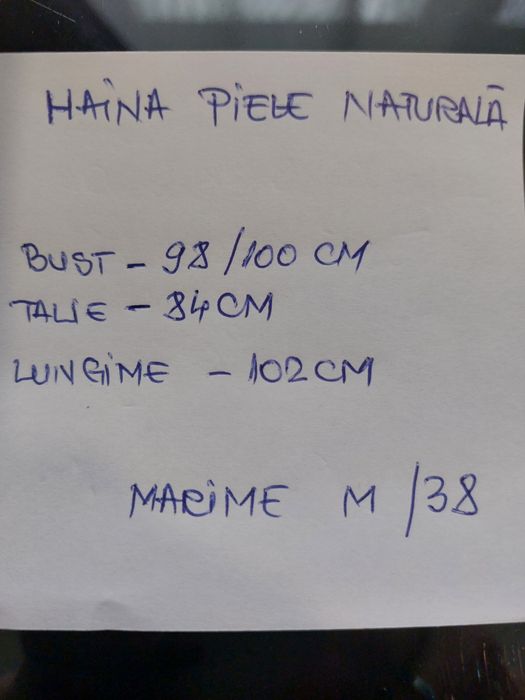 HAINA PIELE NATURALĂ
BUST - 98/100 CM
TALIE - 84CM
LUNGIME - 102CM
MARIME M/38